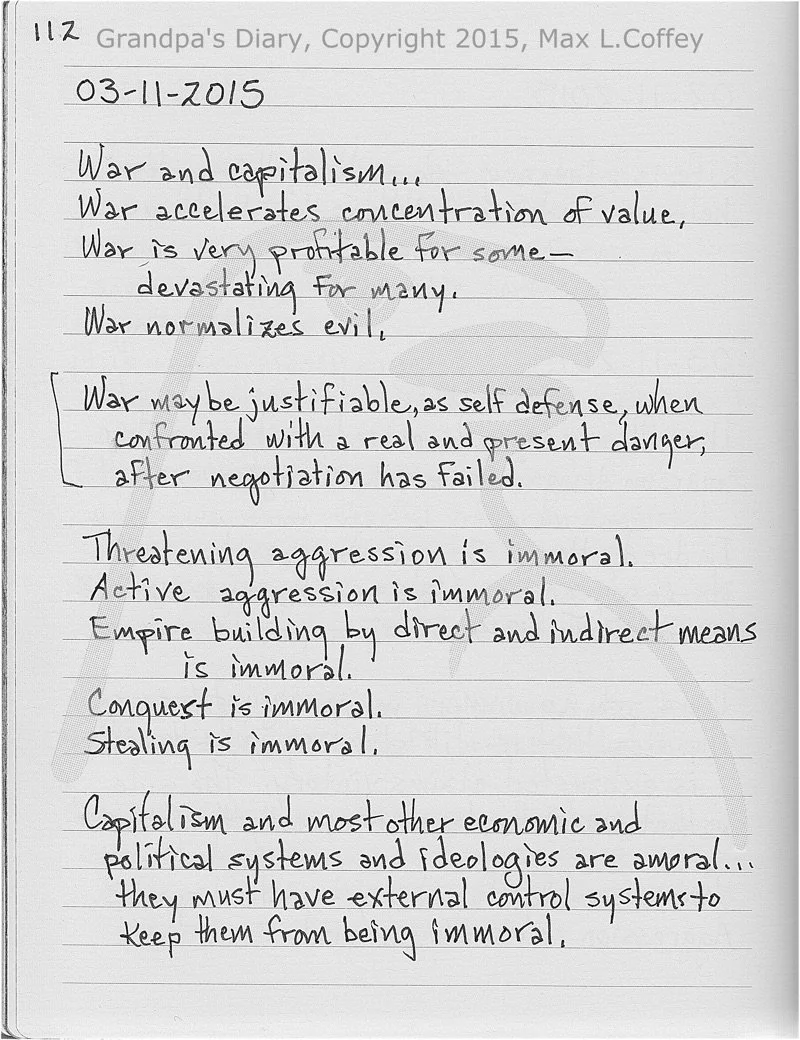 112 Grandpa's Diary, Copyright 2015, Max L.Coffey
03-11-2015
War and capitalism...
War accelerates concentration of value,
War is very profitable for some—
devastating for many.
War normalizes evil.
War may be justifiable, as self defense, when
confronted with a real and present danger,
after negotiation has failed.
Threatening aggression is immoral.
Active aggression is immoral.
Empire building by direct and indirect means
is immoral.
Conquest is immoral.
Stealing is immoral.
Capitalism and most other economic and
political systems and ideologies are amoral...
they must have external control systems to
keep them from being immoral.